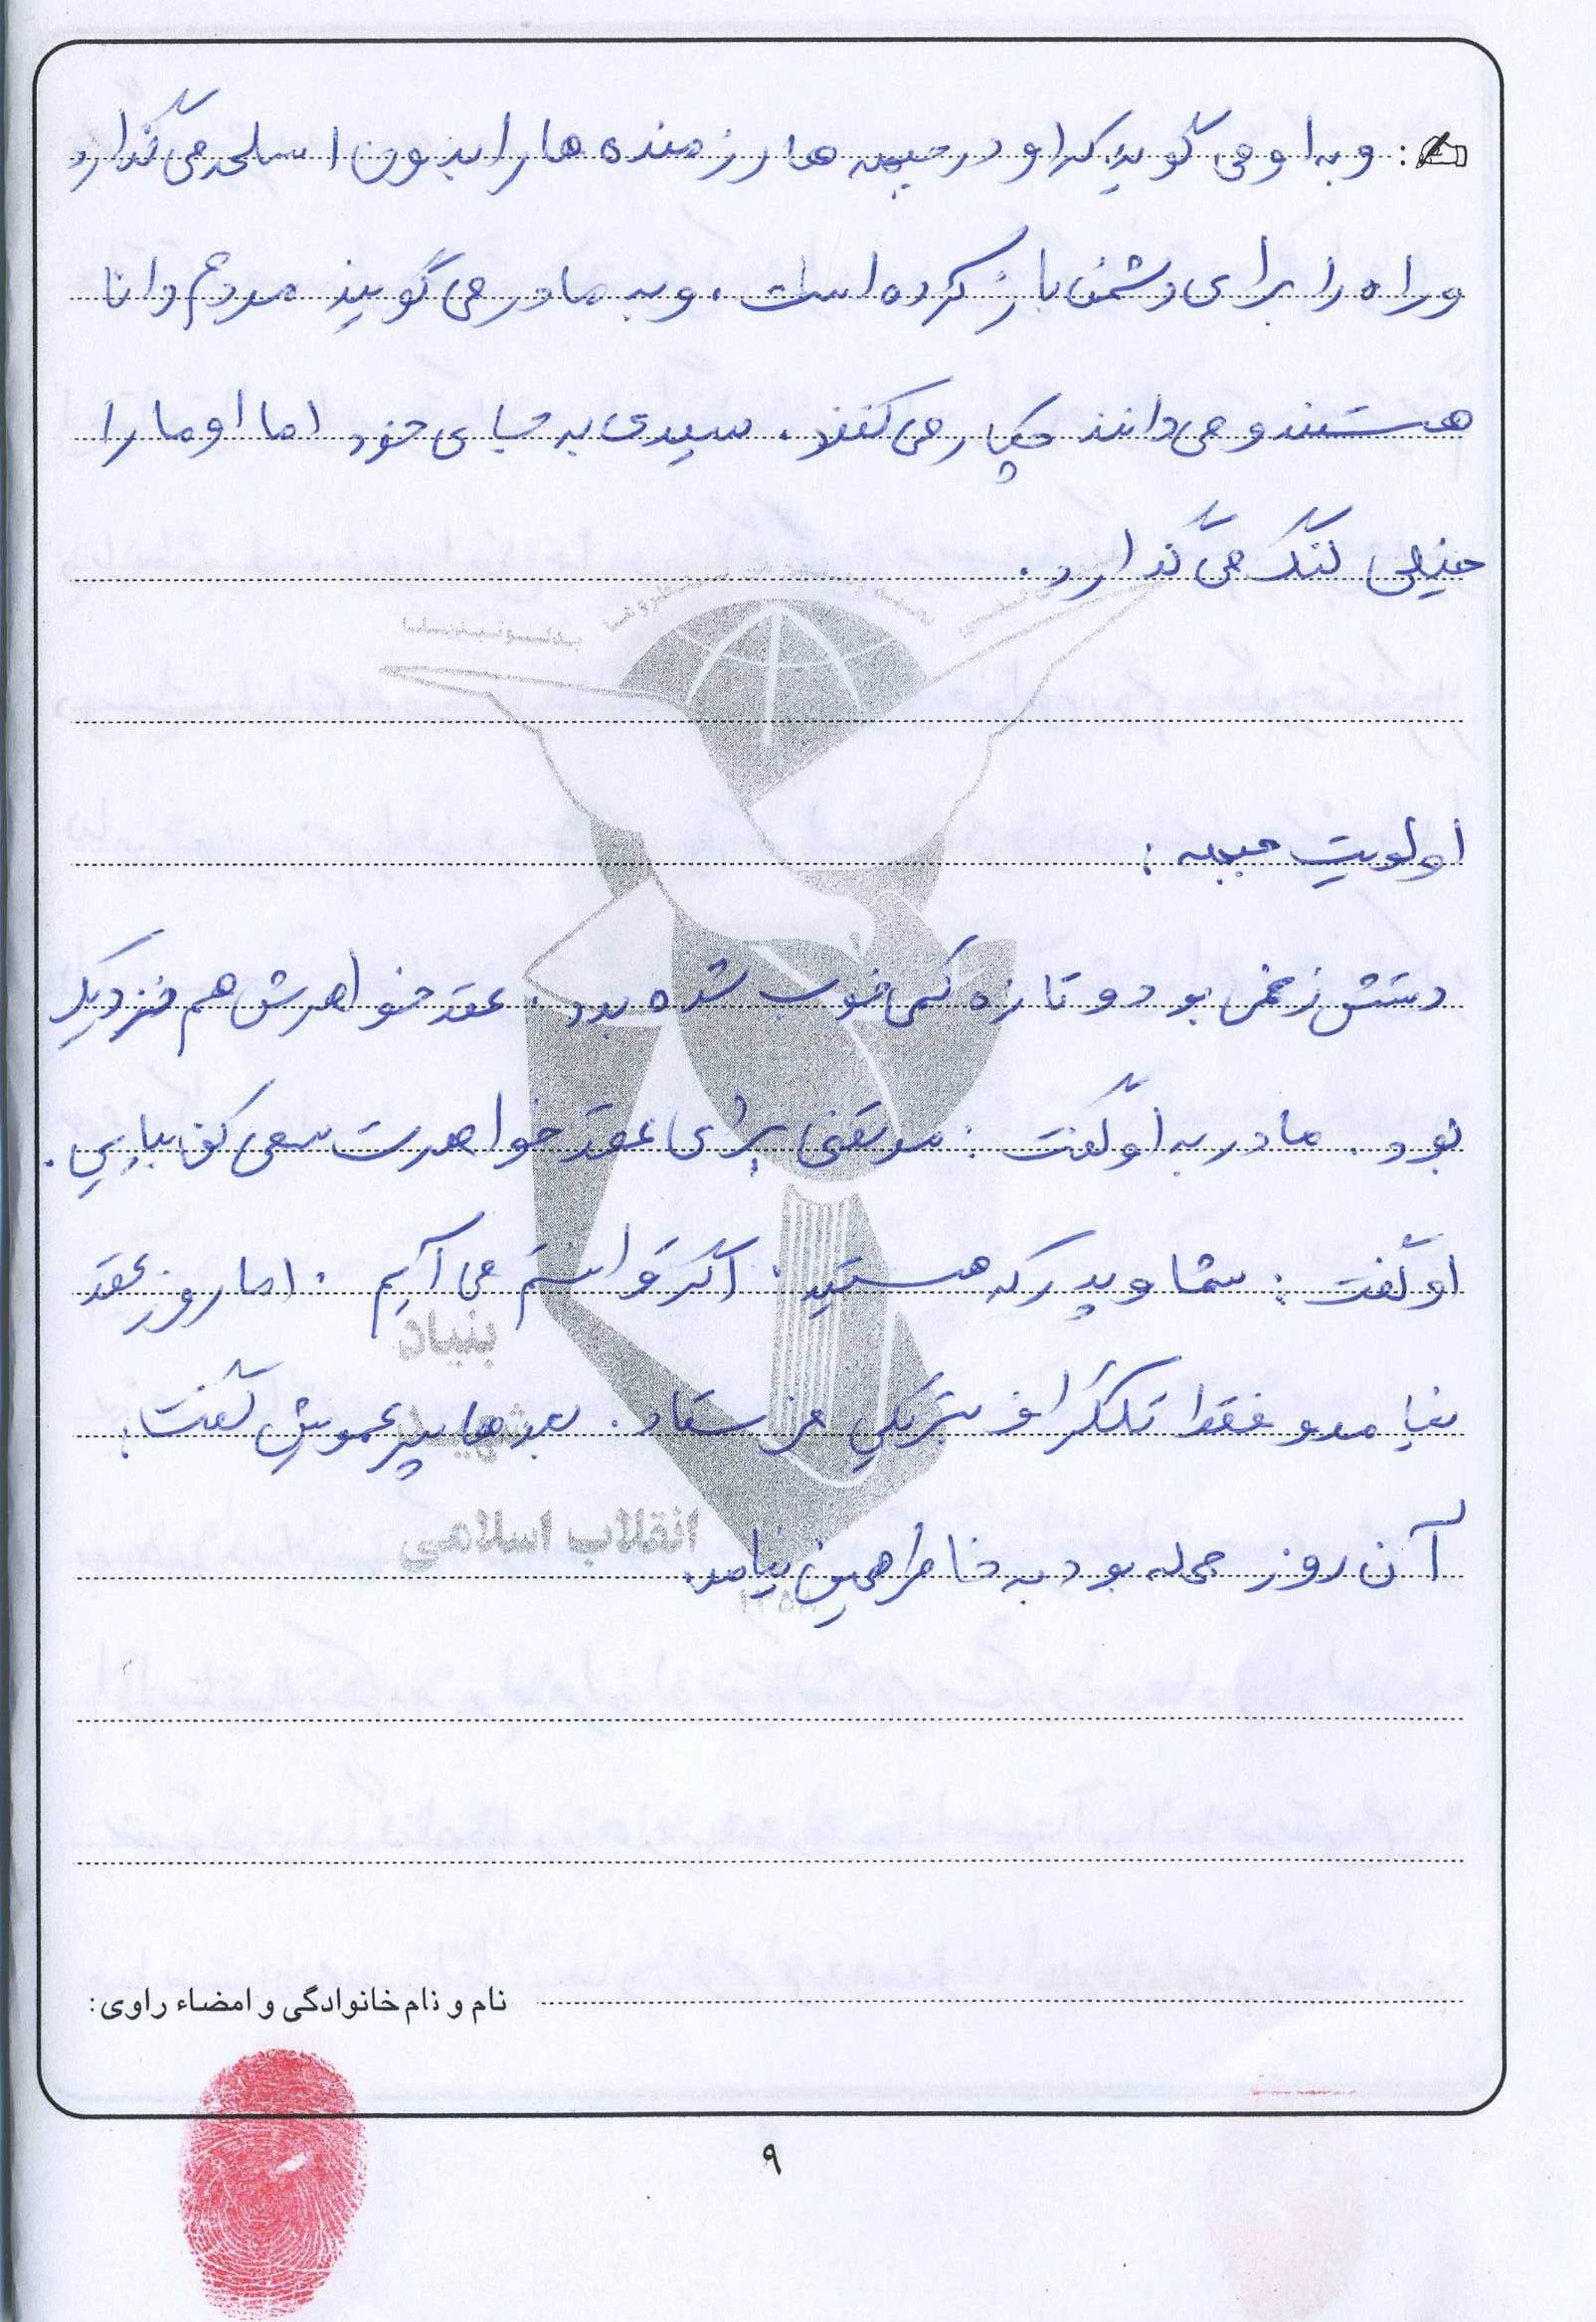 و به او می گوید که او در جبهه ها رزمنده ها را بدون اسلحه می گذارد
و راه را برای دشمن باز کرده است. و به مادر می گویند مردم دانا
هستند و می دانند چکار می کنند. سیدی به جای خود اما او ما را
خیلی لنگ می گذارد.
اولویت جبهه:
دستش زخمی بود و تازه کمی خوب شده بود. عقد خواهرش هم نزدیک
بود. مادر به او گفت: مرتضی برای عقد خواهرت سعی کن بیایی.
او گفت: شما و پدر که هستید. اگر توانستم می آیم. اما روز عقد
نیامد و فقط تلگراف تبریکی فرستاد. بعدها پسر عمویش گفت:
آن روز حمله بود به خاطر همین نیامد.
بنیاد
شهید
انقلاب اسلامی
نام و نام خانوادگی و امضاء راوی:
۹